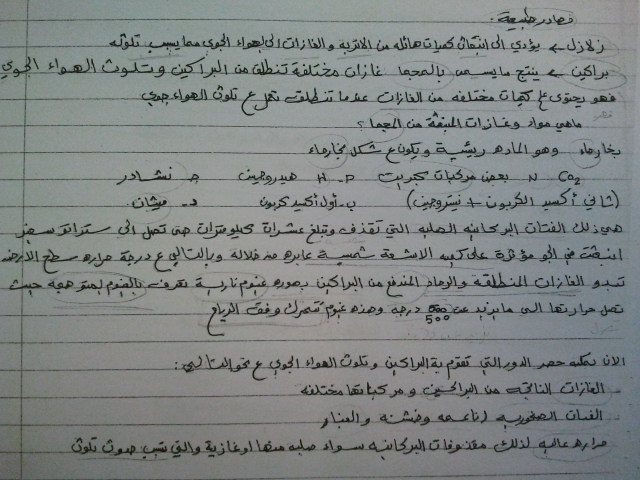 مصادر طبيعية :
زلازل ← يؤدي الى انبعاث كميات هائله من الاتربة والغازات الى الهواء الجوي مما يسبب تلوثه
براكين ← ينتج مايسمى بالمجما غازات مختلفة تنطلق من البراكين وتلوث الهواء الجوي
فهو يحتوي على كميات مختلفه من الغازات عندما تنطلق تعمل ع تلوث الهواء جوي
ماهي مواد وغازات المنبعثة من المجما ؟
بخار ماء وهو الماده رئيسية ويكون ع شكل بخار ماء
CO2 N بعض مركبات كبريت P - H هيدروجين ج نشادر
(ثاني أكسيد الكربون + نيتروجين) ب- أول أكسيد كربون د - ميثان
كذلك الفتات البركانيه الصلبه التي تقذف وتبلغ عشرات كيلومترات حتى تصل الى ستراتوسفير
انبعثت في الجو مؤثرة على كميه الاشعة شمسية عابره من خلاله وبالتالي ع درجة حراره سطح الأرض
تبدو الغازات المنطلقة والرماد المندفع من البراكين بصوره غيوم نارية تعرف بالغيوم المتوهجه حيث
تصل حرارتها الى مايزيد عن 500 درجه وهذه غيوم تتحرك وفق الرياح
الان يمكنه حصر الدور التي تقوم به البراكين وتلوث الهواء الجوي ع نحو التالي :
- الغازات الناتجه من البراكين ومركباتها مختلفه
- الفتات الصخوريه ناعمه وخشنه والغبار
- حراره عاليه لذلك مقذوفات البركانيه سواء صلبه منها او غازية والتي تسبب حدوث تلوث